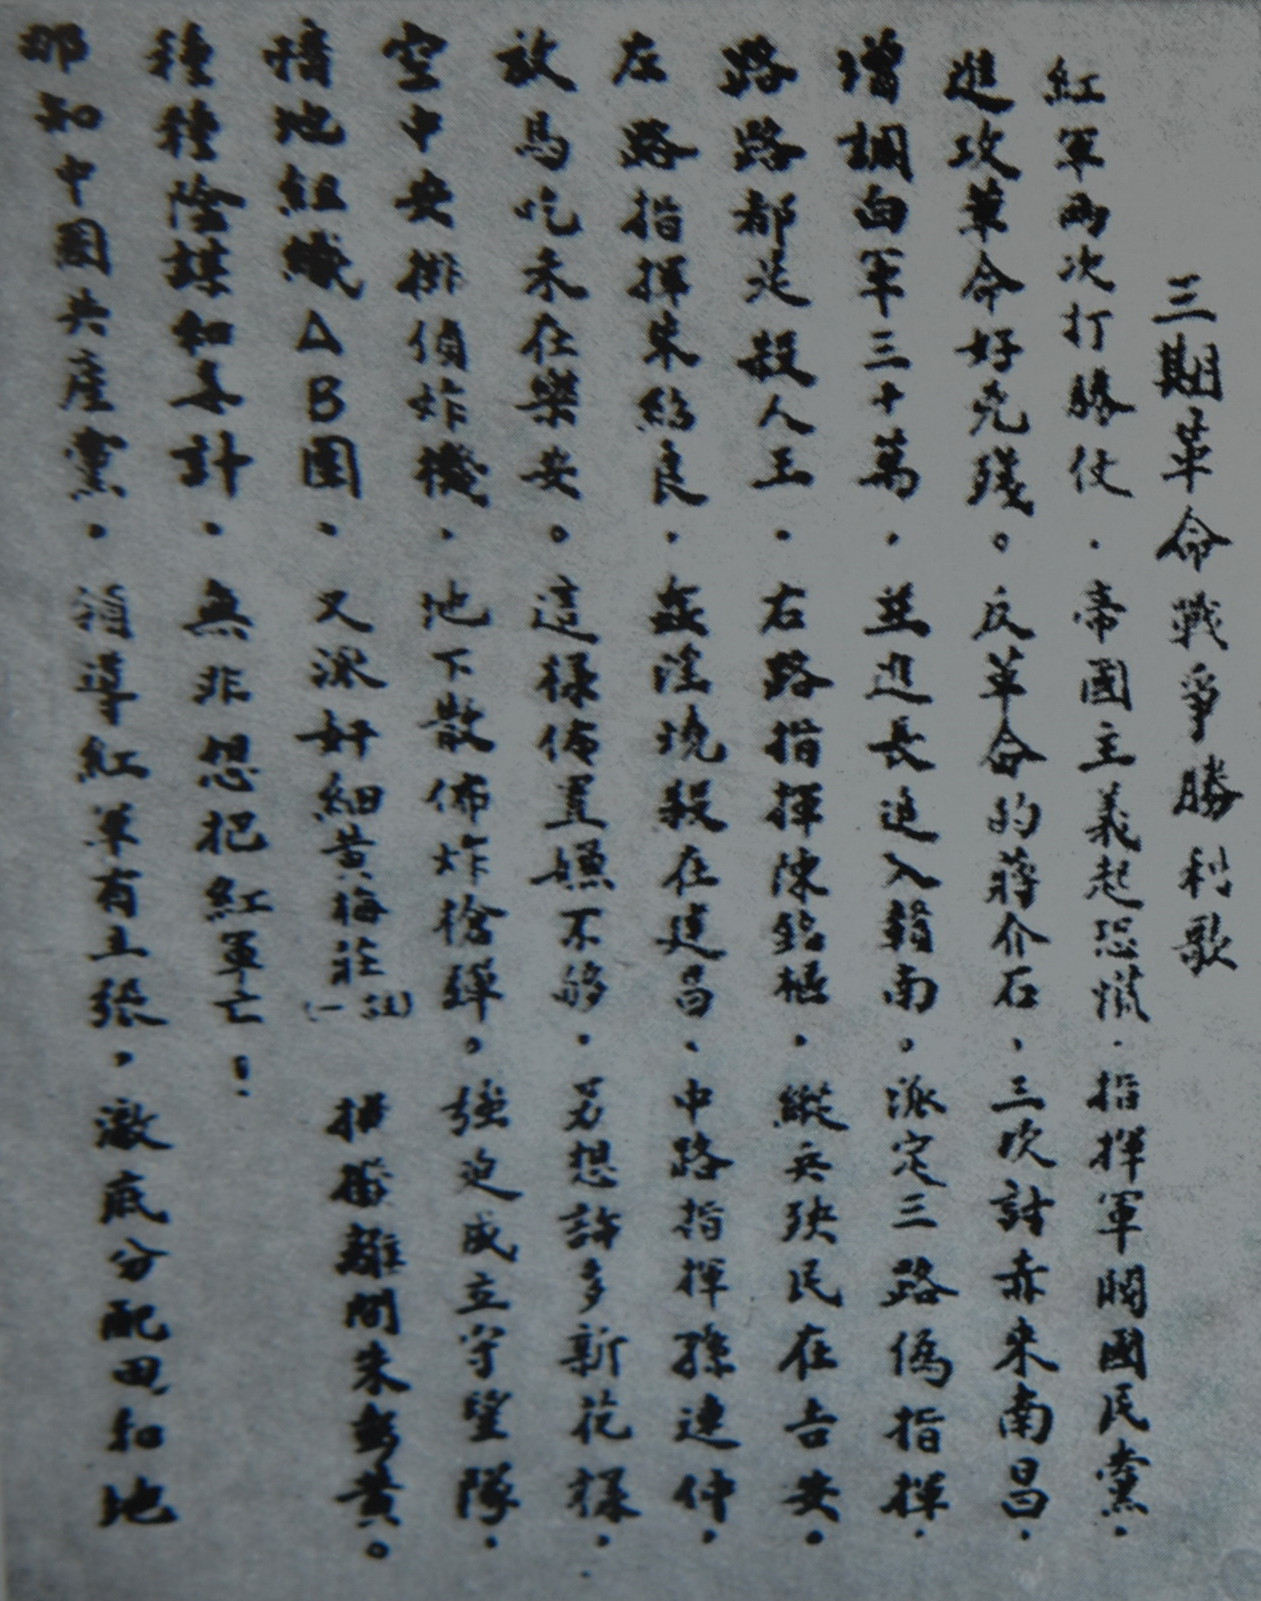 三期革命戰爭勝利歌
紅軍兩次打勝仗．帝國主義起恐慌．指揮軍閥國民黨．
進攻革命好兇殘。反革命的蔣介石．三次討赤來南昌．
增調白軍三十萬．並進長追入贛南。派定三路偽指揮．
路路都是殺人王．右路指揮陳銘樞．縱兵殃民在吉安．
左路指揮朱紹良．姦淫燒殺在建昌．中路指揮孫連仲．
放馬吃禾在樂安。這樣佈置嫌不夠．另想許多新花樣．
空中央排偵炸機．地下散佈炸槍彈。強迫成立守望隊．
暗地組織AB團．又派奸細黃梅莊 離間朱彭黃。
種種陰謀和毒計．無非想把紅軍亡！
那知中國共產黨．領導紅軍有主張．澈底分配田和地